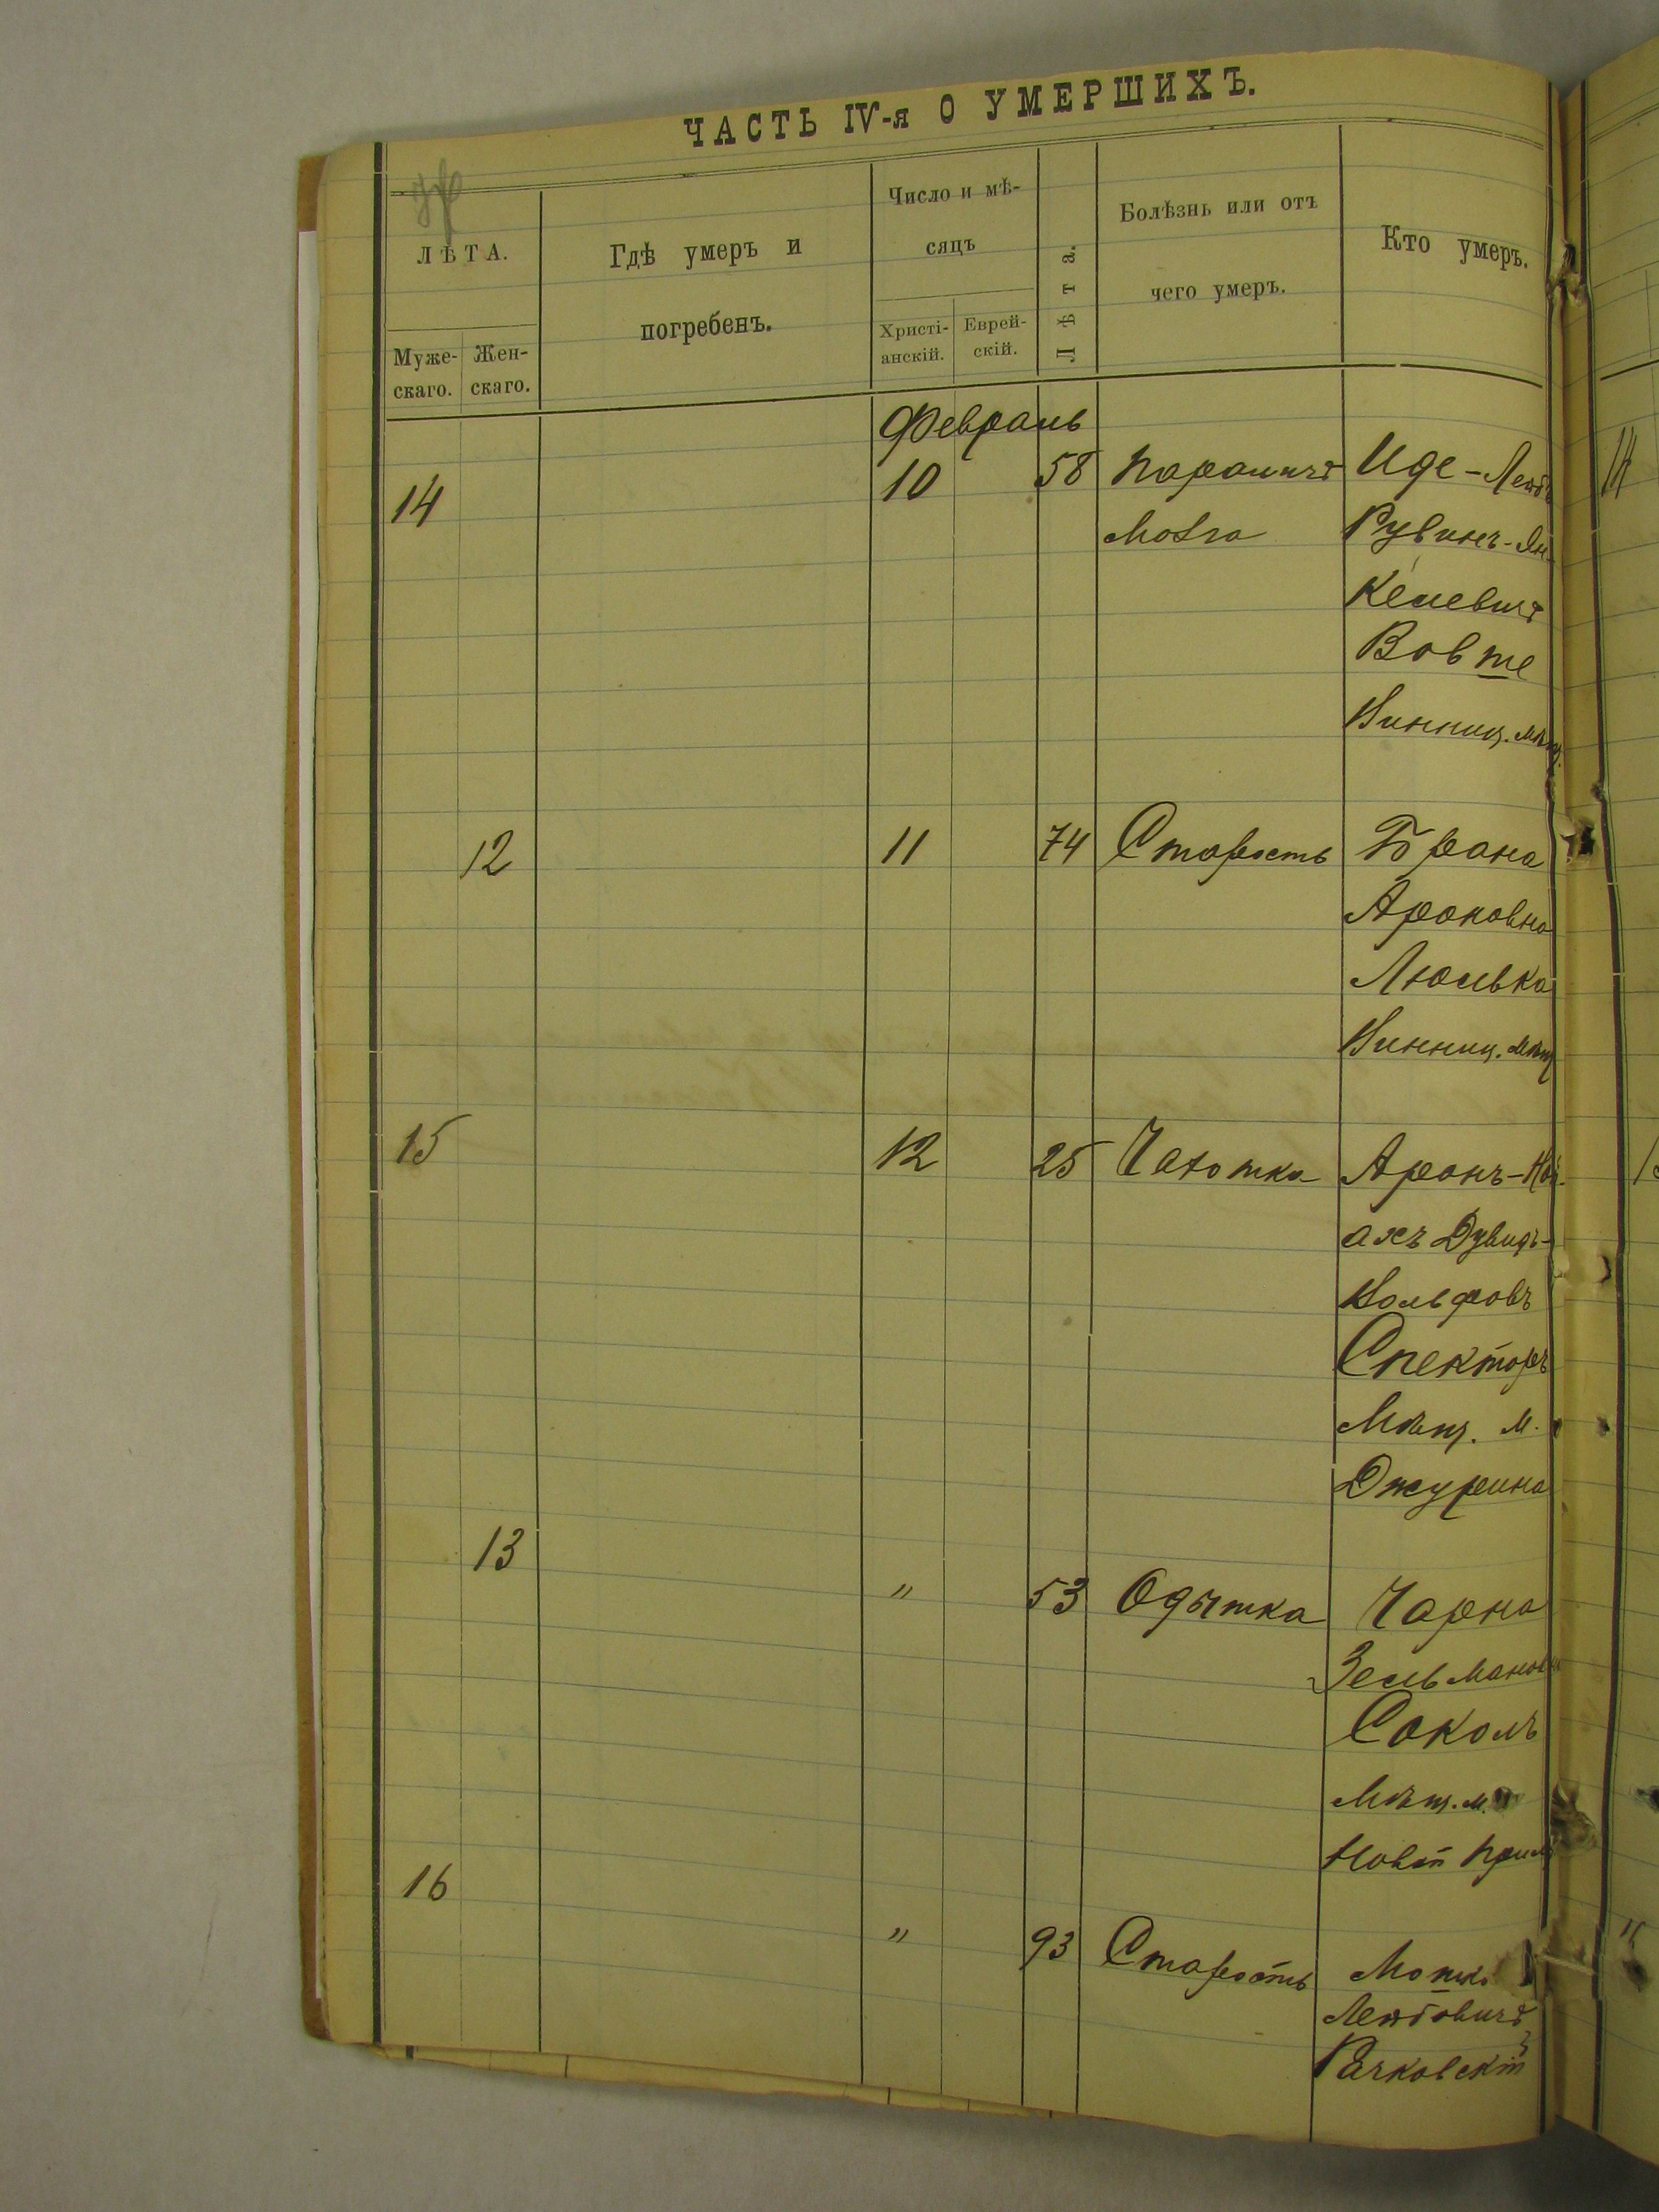 ЧАСТЬ IV-я О УМЕРШИХЪ.
ЛѢТА.
Муже-
скаго.
Жен-
скаго.
Гдѣ умеръ и
погребенъ.
Число и мѣ-
сяцъ
Христі-
анскій.
Еврей-
скій.
Лѣта.
Болѣзнь или отъ
чего умеръ.
Кто умеръ.
Февраль
14 10 58 Параличъ Иде-Лейбъ
Мозга Рувинъ-Ян-
келевичъ
Вовше
Винниц. мѣщ.
12 11 74 Старость Брана
Ароновна
Люлька
Винниц. мѣщ
15 12 25 Чахотка Аронъ-Ной-
ахъ Дувидъ-
Вольфовъ
Спекторъ
Мѣщ. м.
Джурина
13 " 53 Одышка Чарна
Зельмановн
Соколъ
Мѣщ. м.
Новой
16 " 93 Старость
Лейбовичъ
Рачковскій